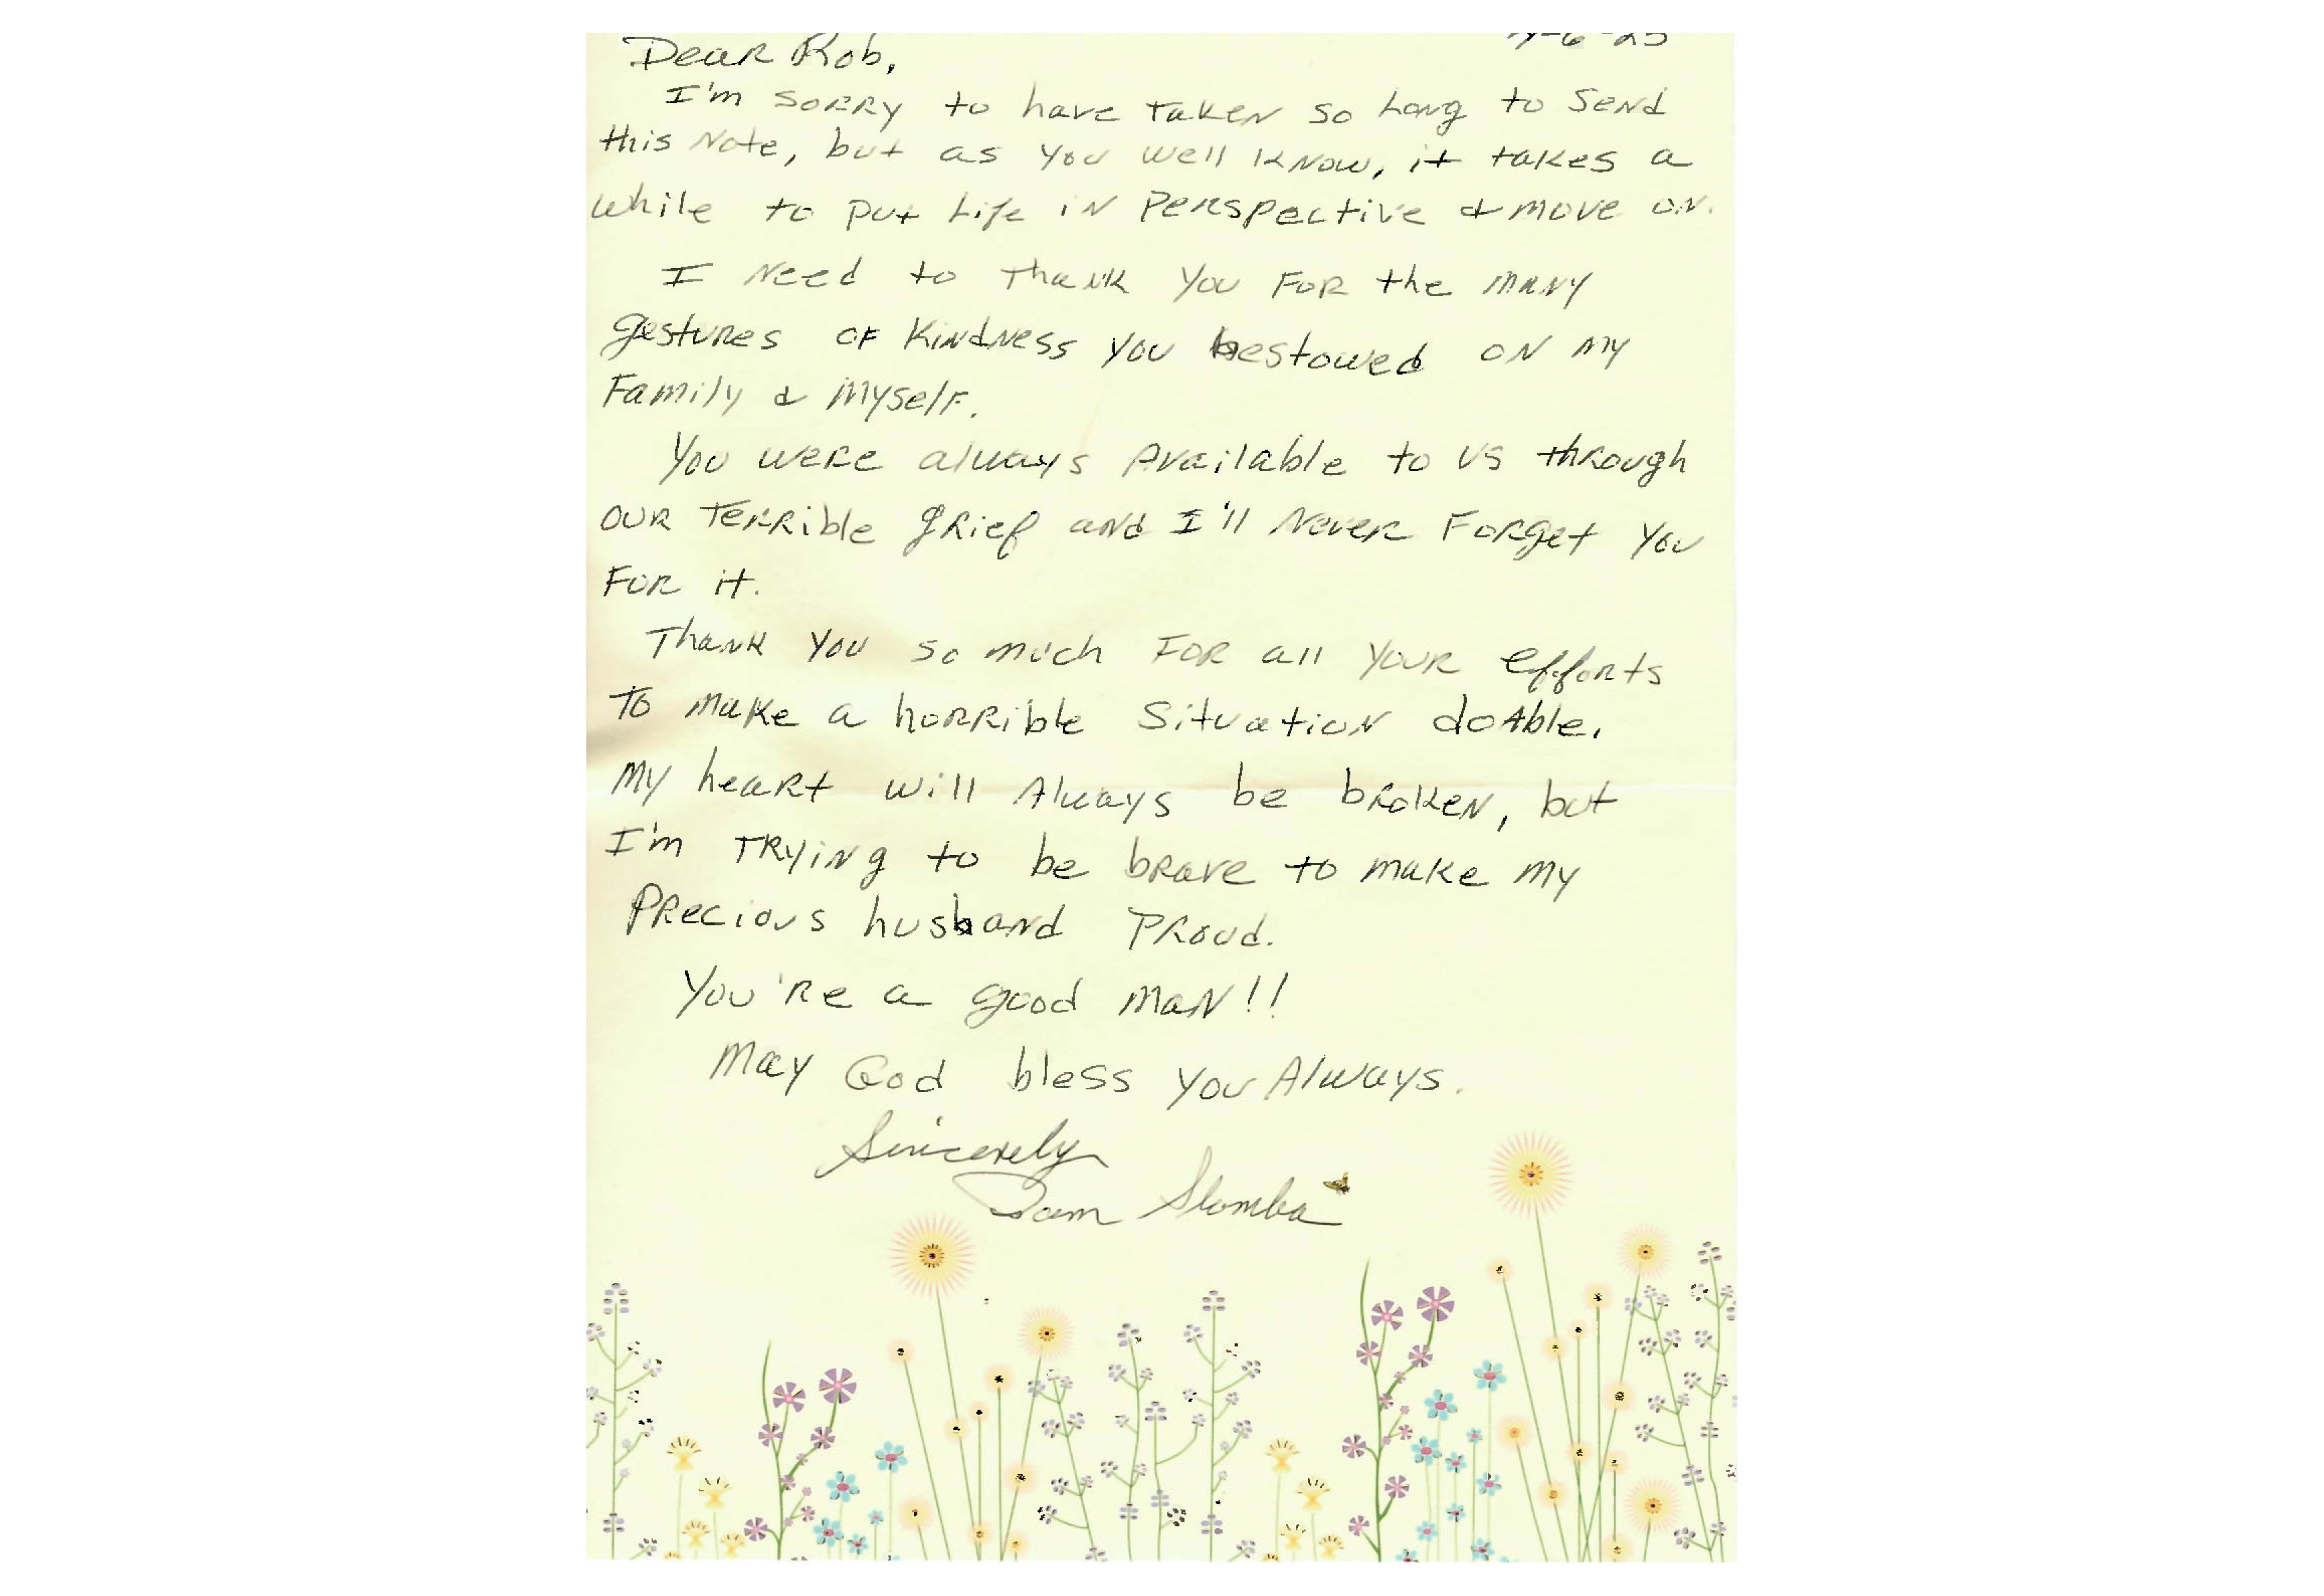 Dear Rob,
I'm sorry to have taken so long to send
this note, but as you well know, it takes a
while to put life in perspective & move on.
I need to thank you for the many
gestures of kindness you bestowed on my
family & myself.
You were always available to us through
our terrible grief and I'll never forget you
for it.
Thank you so much for all your efforts
to make a horrible situation doable.
My heart will always be broken, but
I'm trying to be brave to make my
precious husband proud.
You're a good man!!
May God bless you always.
Sincerely
Pam Slomba